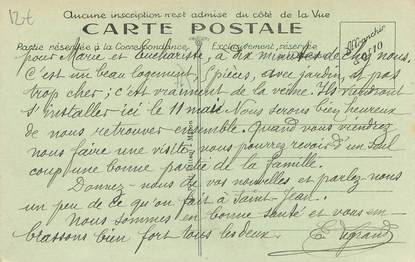 12€
Aucune inscription n'est admise du côté de la Vue
CARTE POSTALE
Partie réservée à la Correspondance
Exclusivement, réservée
Affranchir
0f10
pour Marie et Eucharisse, à dix minutes de chez nous.
C'est un beau logement, 5 pièces, avec jardin, et pas
trop cher ; c'est vraiment de la veine. Ils viendront
s'installer ici le 11 mai. Nous serons bien heureux
de nous retrouver ensemble. Quand vous viendrez
nous faire une visite, vous pourrez revoir d'un seul
coup une bonne partie de la famille.
Donnez-nous de vos nouvelles et parlez nous
un peu de ce qu'on fait à Saint-Jean.
Nous sommes en bonne santé et vous em-
brassons bien fort tous les deux.